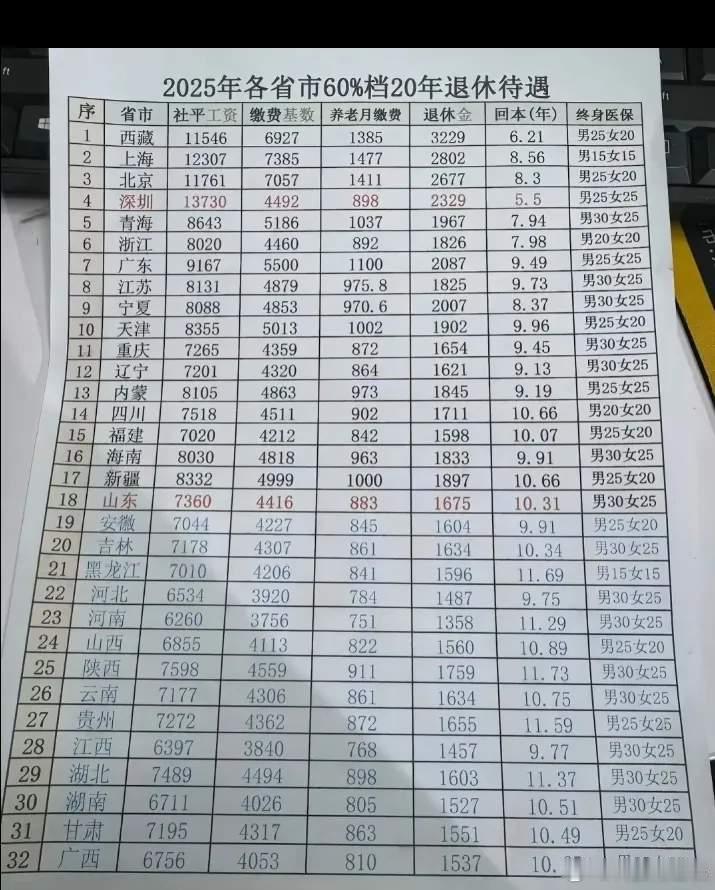 2025年各省市60%档20年退休待遇
序 省市 社平工资 缴费基数 养老月缴费 退休金 回本(年) 终身医保
1 西藏 11546 6927 1385 3229 6.21 男25女20
2 上海 12307 7385 1477 2802 8.56 男15女15
3 北京 11761 7057 1411 2677 8.3 男25女20
4 深圳 13730 4492 898 2329 5.5 男25女25
5 青海 8643 5186 1037 1967 7.94 男30女25
6 浙江 8020 4460 892 1826 7.98 男20女20
7 广东 9167 5500 1100 2087 9.49 男25女25
8 江苏 8131 4879 975.8 1825 9.73 男30女25
9 宁夏 8088 4853 970.6 2007 8.37 男30女25
10 天津 8355 5013 1002 1902 9.96 男25女20
11 重庆 7265 4359 872 1654 9.45 男30女25
12 辽宁 7201 4320 864 1621 9.13 男30女25
13 内蒙 8105 4863 973 1845 9.19 男25女25
14 四川 7518 4511 902 1711 10.66 男20女20
15 福建 7020 4212 842 1598 10.07 男25女20
16 海南 8030 4818 963 1833 9.91 男30女25
17 新疆 8332 4999 1000 1897 10.66 男25女20
18 山东 7360 4416 883 1675 10.31 男30女25
19 安徽 7044 4227 845 1604 9.91 男25女20
20 吉林 7178 4307 861 1634 10.34 男30女25
21 黑龙江 7010 4206 841 1596 11.69 男15女15
22 河北 6534 3920 784 1487 9.75 男30女25
23 河南 6260 3756 751 1358 11.29 男30女25
24 山西 6855 4113 822 1560 10.89 男25女20
25 陕西 7598 4559 911 1759 11.73 男30女25
26 云南 7177 4306 861 1634 10.75 男30女25
27 贵州 7272 4362 872 1655 11.59 男25女25
28 江西 6397 3840 768 1457 9.77 男30女25
29 湖北 7489 4494 898 1603 11.37 男30女25
30 湖南 6711 4026 805 1527 10.51 男30女25
31 甘肃 7195 4317 863 1551 10.49 男25女20
32 广西 6756 4053 810 1537 10.